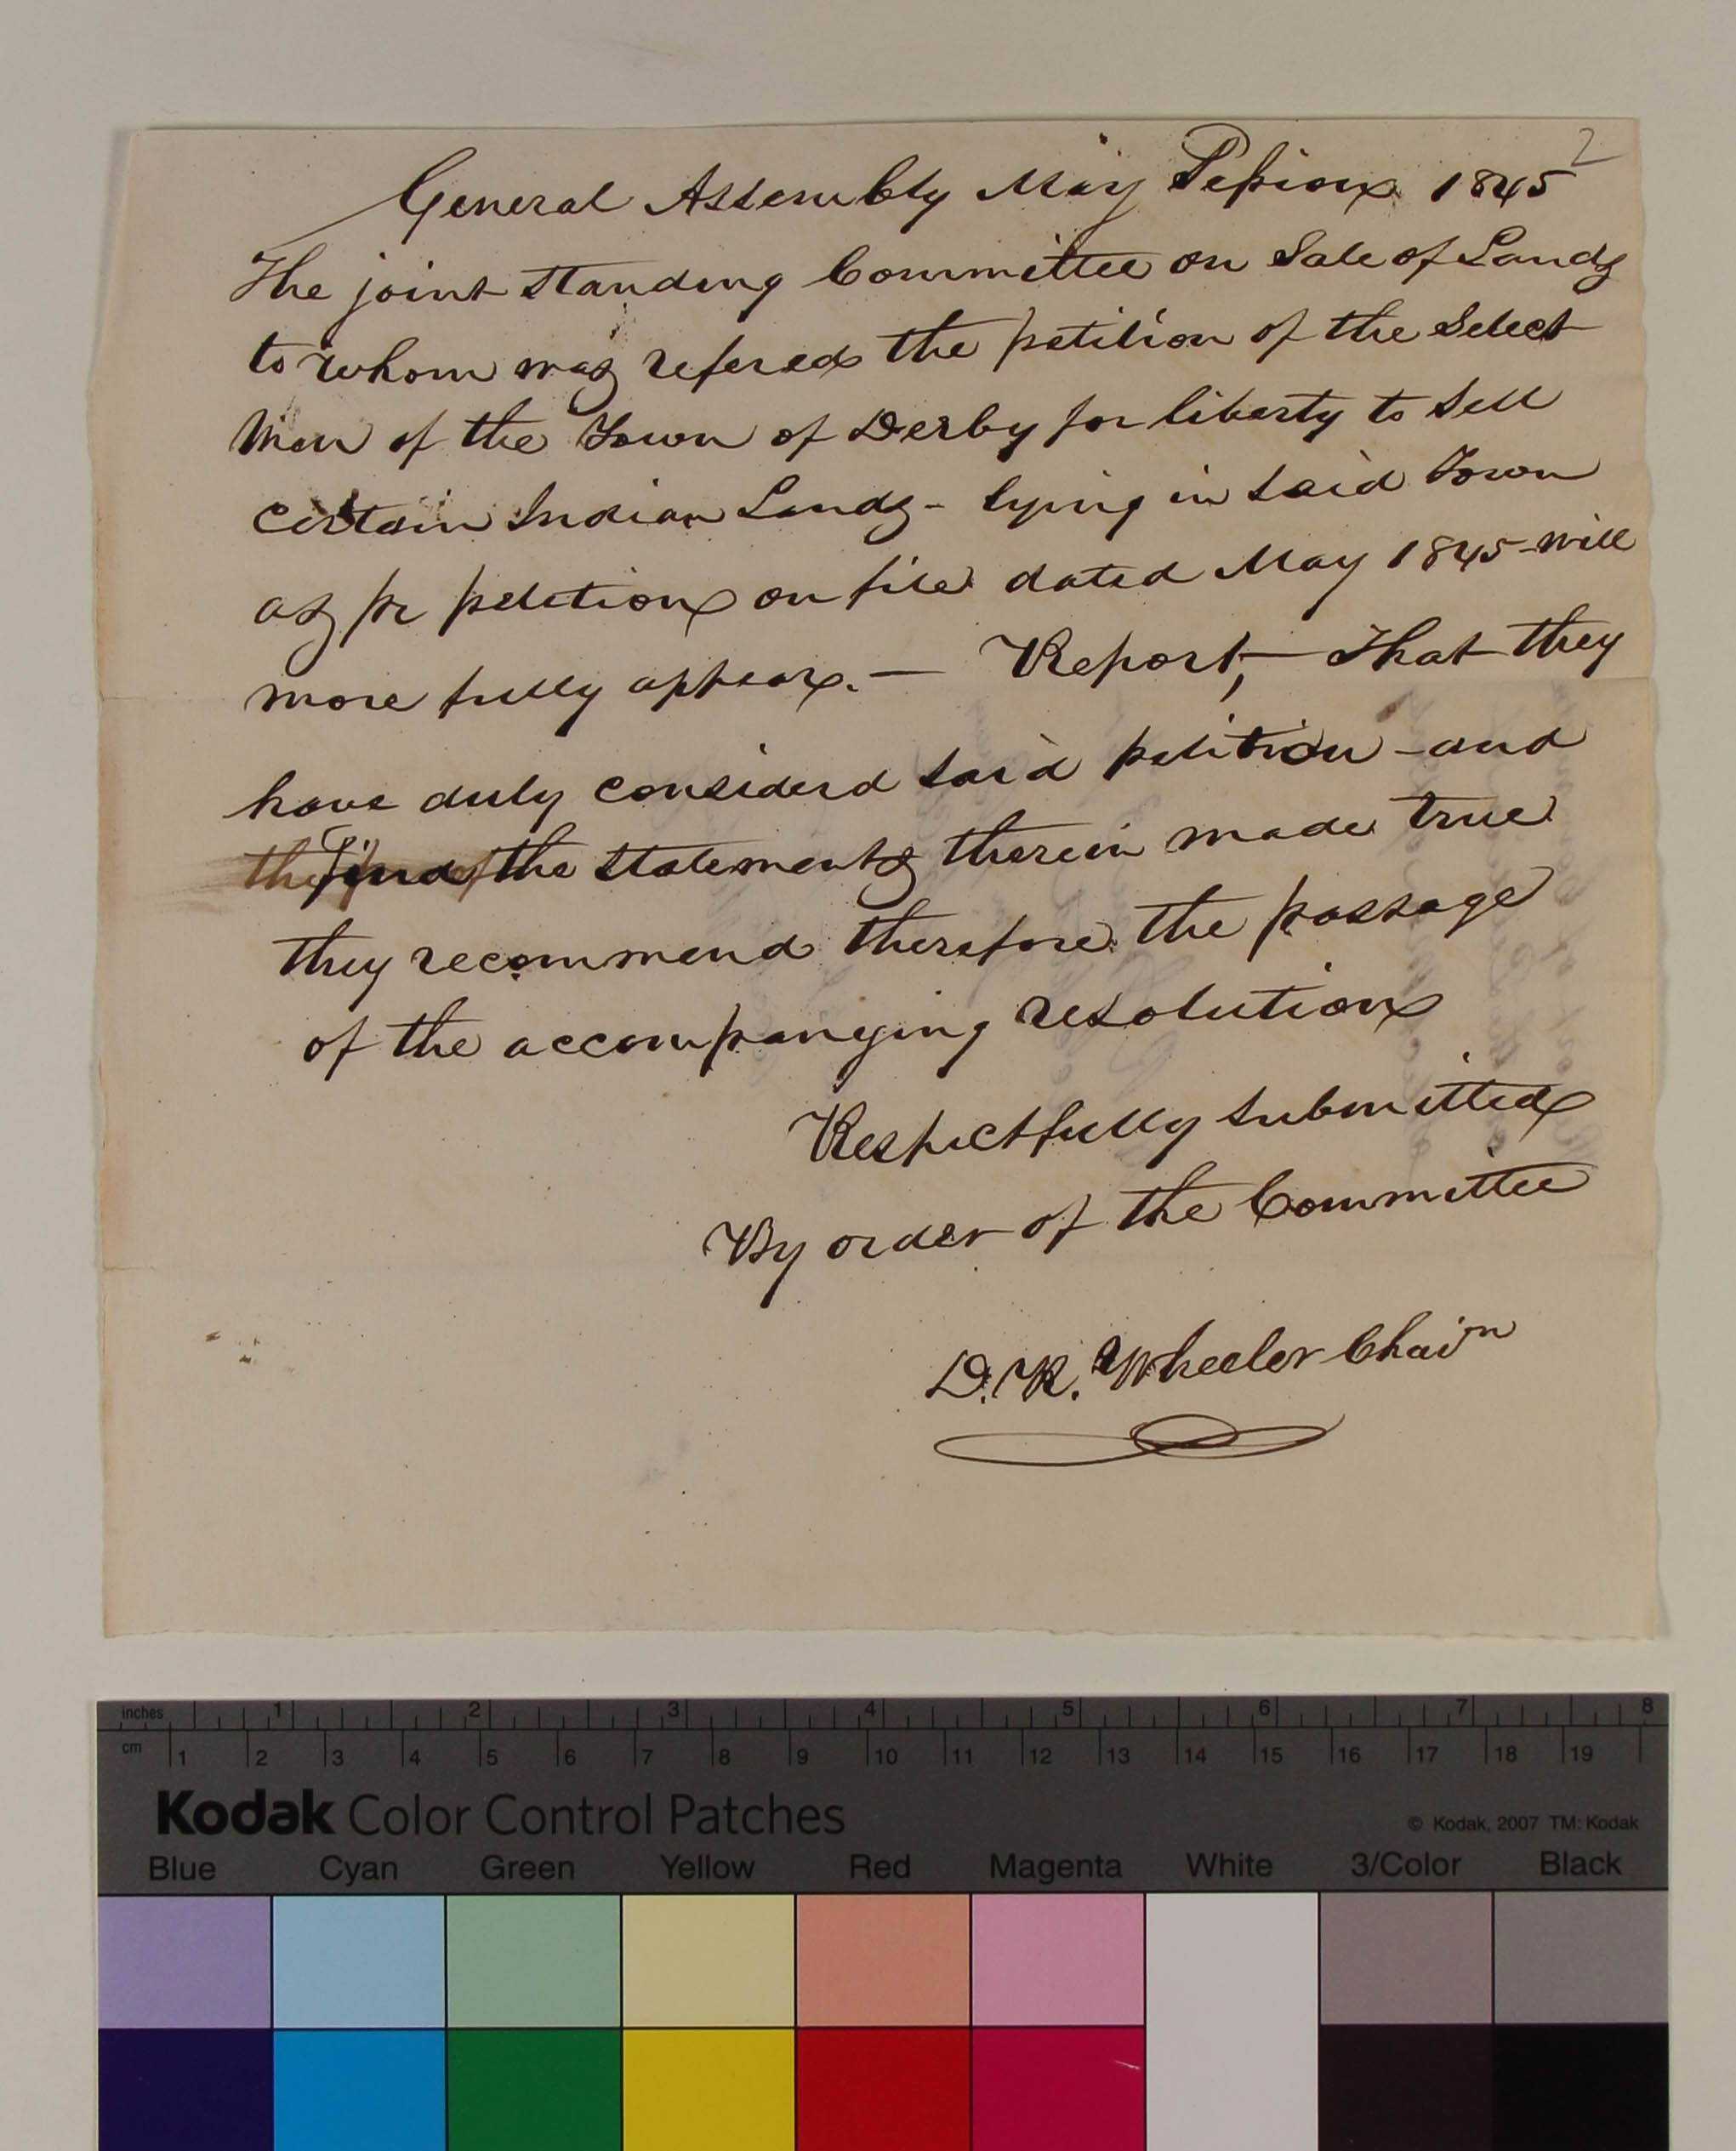 2
General Assembly May Session 1845
The joint standing Committee on Sale of Lands
to whom was refered the petition of the Select
Men of the Town of Derby for liberty to sell
certain Indian Lands - lying in said Town
as pr petition on file dated May 1845 - will
more fully appear. — Report, — That they
have duly considerd said petition - and
they find the statements therein made true
they recommend therefore the passage
of the accompanying resolution
Respectfully submitted
By order of the Committee
D. R. Wheeler Chairn
inches 1 2 3 4 5 6 7 8
cm 1 2 3 4 5 6 7 8 9 10 11 12 13 14 15 16 17 18 19
Kodak Color Control Patches
© Kodak, 2007 TM: Kodak
Blue Cyan Green Yellow Red Magenta White 3/Color Black